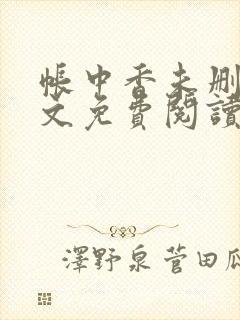 帳中香未刪
文免費閱讀
澤野泉菅田瓜